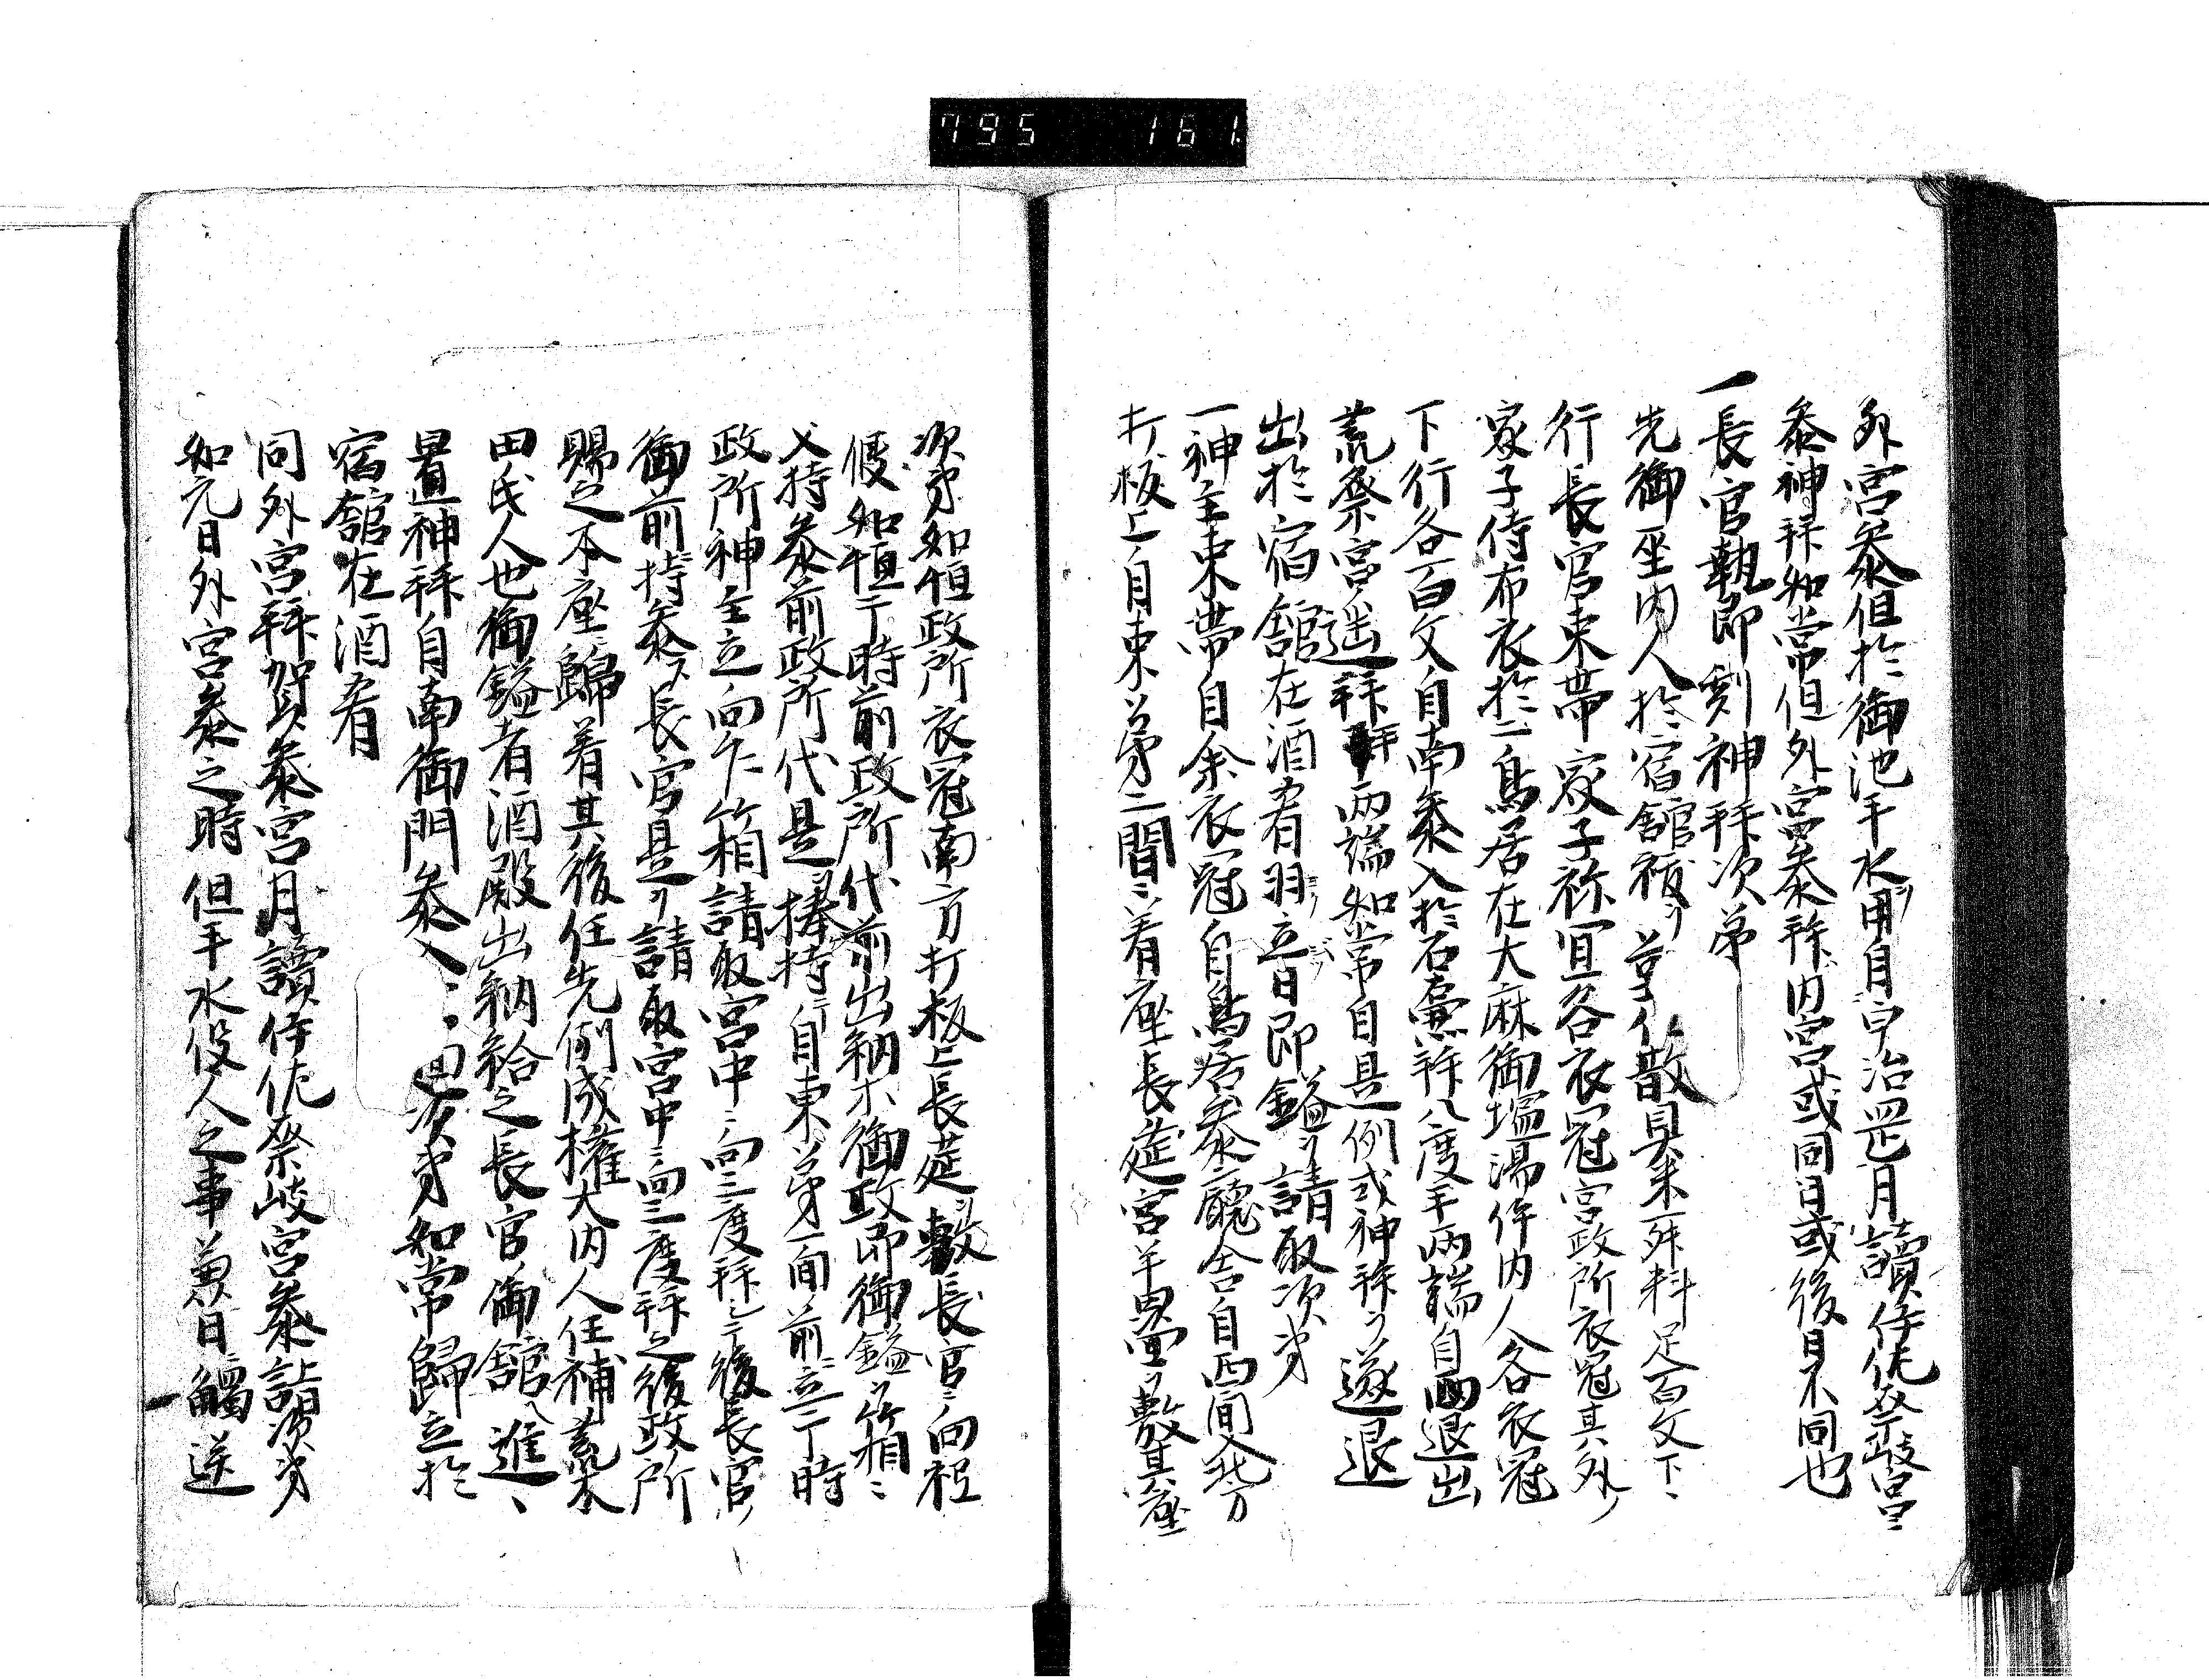 795 161
外宮参但於御池手水用自由治罡月讀伊佐奈岐宮ニ
参神拜如常但外宮参拜内宮或同日或後日不同也
一長官執印剋神拜次第
先御巫内人於宿館祓ヲ具米一舛料足百文下
行長官束帶家子祢宜各衣冠宮政所衣冠其外ノ
家子侍布衣於一鳥居在大麻御塩湯件内人各衣冠
下行各百文自南参入於石壷拜八度手両端自西退出
荒祭宮遥拜拜手両端如常自是例式神拜ヲ遂退
出於宿舘在酒肴羽立日即鎰ヲ請取次第
一神主束帶自余衣冠自鳥居参廳舎自西間入北方
打板上自東第二間ニ着座長莚宮半畳ヲ敷其座
次第如恒政所衣冠南方打板上長莚ヲ敷長官ニ向祗
候如恒于時前政所代前出納木御政印御鎰ノ箱ニ
入持参前政所代是ヲ捧持自東第一間前ニ立于時
政所神主立向乍箱請取宮中ニ向三度拜之後長官ノ
御前ニ持参ス長官是ヲ請取宮中ニ向三度拜之後政所
賜之本座ニ歸着其後任先例成權大内人任補荒木
田氏人也御鎰者酒殿出納給之長官御舘ヘ進
畳神拜自南御門参入次第如常歸立於
宿舘在酒肴
同外宮拜賀参宮月讀伊佐奈岐宮参詣次第
如元日外宮参之時但手水役人之事兼日觸送